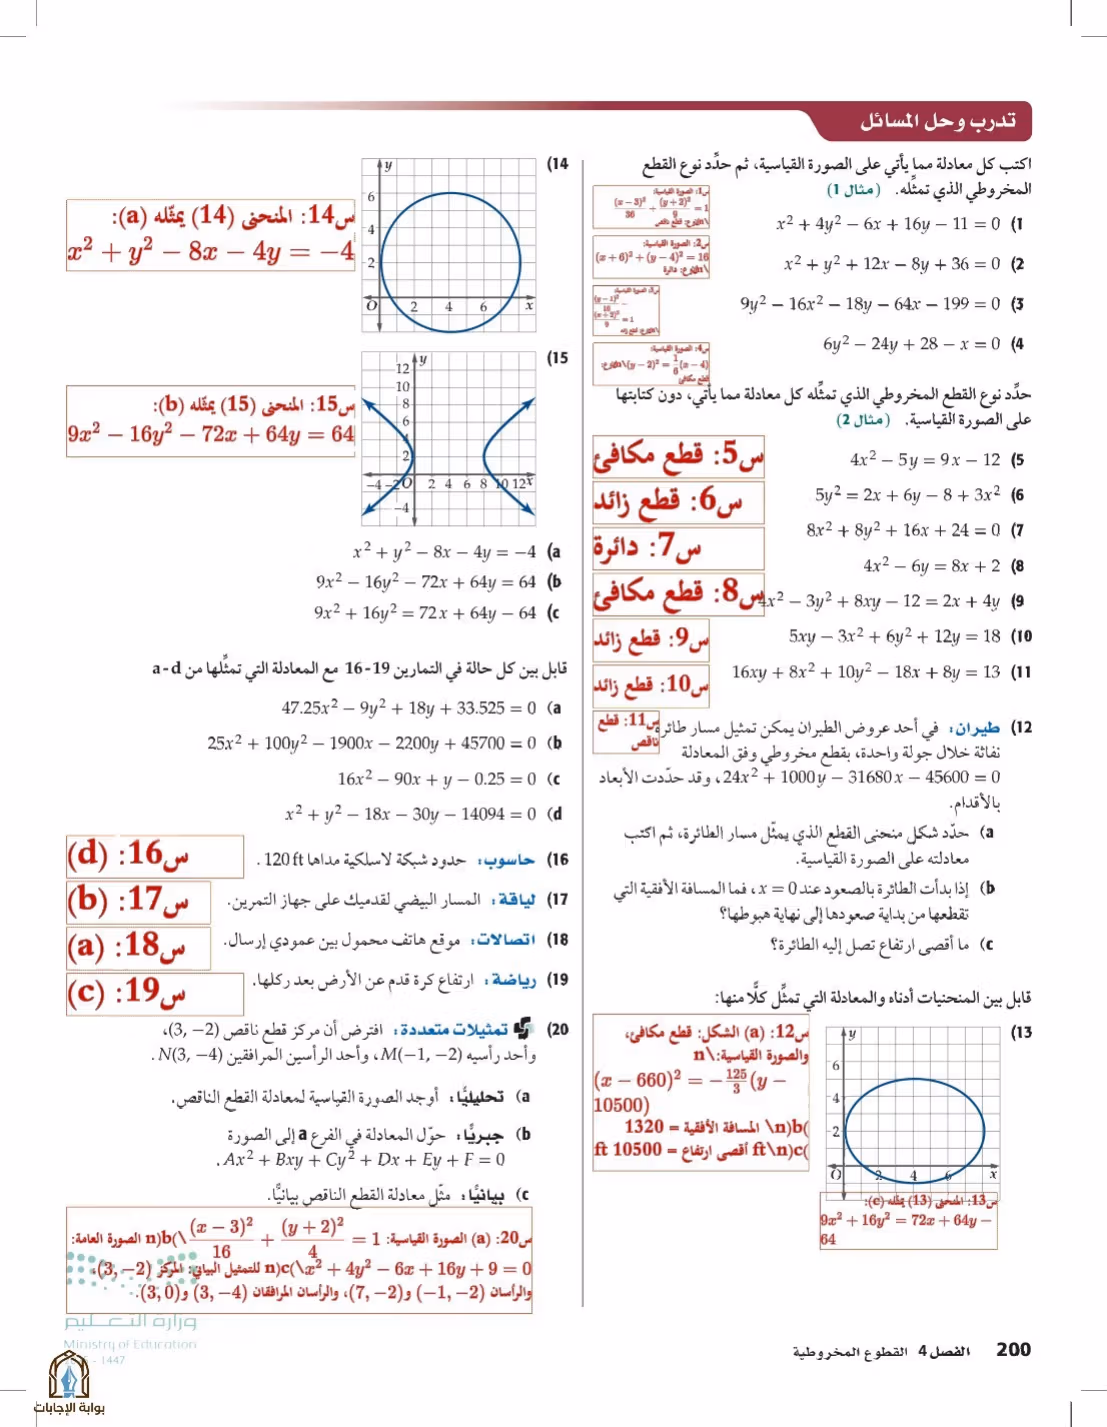 تدرب وحل المسائل
اكتب كل معادلة مما يأتي على الصورة القياسية، ثم حدِّد نوع القطع
المخروطي الذي تمثِّله. (مثال 1)
1) x² + 4y² − 6x + 16y − 11 = 0
س1: الصورة القياسية:
(x − 3)²/36 + (y + 2)²/9 = 1
2) x² + y² + 12x − 8y + 36 = 0
س2: الصورة القياسية:
(x + 6)² + (y − 4)² = 16
\nالنوع: دائرة
3) 9y² − 16x² − 18y − 64x − 199 = 0
س3: الصورة القياسية:
(y − 1)²/16 −
(x + 2)²/9 = 1
4) 6y² − 24y + 28 − x = 0
س4: الصورة القياسية:
(y − 2)² = 1/6 (x − 4)\nالنوع:
قطع مكافئ
حدِّد نوع القطع المخروطي الذي تمثِّله كل معادلة مما يأتي، دون كتابتها
على الصورة القياسية. (مثال 2)
5) 4x² − 5y = 9x − 12
س5: قطع مكافئ
6) 5y² = 2x + 6y − 8 + 3x²
س6: قطع زائد
7) 8x² + 8y² + 16x + 24 = 0
س7: دائرة
8) 4x² − 6y = 8x + 2
س8: قطع مكافئ
9) 4x² − 3y² + 8xy − 12 = 2x + 4y
س9: قطع زائد
10) 5xy − 3x² + 6y² + 12y = 18
س10: قطع زائد
11) 16xy + 8x² + 10y² − 18x + 8y = 13
س11: قطع
ناقص
12) طيران: في أحد عروض الطيران يمكن تمثيل مسار طائرة
نفاثة خلال جولة واحدة، بقطع مخروطي وفق المعادلة
24x² + 1000y − 31680x − 45600 = 0، وقد حدِّدت الأبعاد
بالأقدام.
a) حدِّد شكل منحنى القطع الذي يمثِّل مسار الطائرة، ثم اكتب
معادلته على الصورة القياسية.
b) إذا بدأت الطائرة بالصعود عند x = 0، فما المسافة الأفقية التي
تقطعها من بداية صعودها إلى نهاية هبوطها؟
c) ما أقصى ارتفاع تصل إليه الطائرة؟
قابل بين المنحنيات أدناه والمعادلة التي تمثِّل كلًّا منها:
13)
y
6
4
2
O 2 4 6 x
س12: (a) الشكل: قطع مكافئ،
والصورة القياسية:\n
(x − 660)² = −125/3 (y −
10500)
\n(b) المسافة الأفقية = 1320
ft\n(c) أقصى ارتفاع = 10500 ft
س13: المنحنى (13) يمثّله (c):
9x² + 16y² = 72x + 64y −
64
14)
y
6
4
2
O 2 4 6 x
س14: المنحنى (14) يمثّله (a):
x² + y² − 8x − 4y = −4
15)
y
12
10
8
6
4
2
−4 −2 O 2 4 6 8 10 12 x
−4
س15: المنحنى (15) يمثّله (b):
9x² − 16y² − 72x + 64y = 64
a) x² + y² − 8x − 4y = −4
b) 9x² − 16y² − 72x + 64y = 64
c) 9x² + 16y² = 72x + 64y − 64
قابل بين كل حالة في التمارين 19-16 مع المعادلة التي تمثِّلها من a-d
a) 47.25x² − 9y² + 18y + 33.525 = 0
b) 25x² + 100y² − 1900x − 2200y + 45700 = 0
c) 16x² − 90x + y − 0.25 = 0
d) x² + y² − 18x − 30y − 14094 = 0
16) حاسوب: حدود شبكة لاسلكية مداها 120 ft .
س16: (d)
17) لياقة: المسار البيضي لقدميك على جهاز التمرين.
س17: (b)
18) اتصالات: موقع هاتف محمول بين عمودي إرسال.
س18: (a)
19) رياضة: ارتفاع كرة قدم عن الأرض بعد ركلها.
س19: (c)
20) تمثيلات متعددة: افترض أن مركز قطع ناقص (3, −2)،
وأحد رأسيه M(−1, −2)، وأحد الرأسين المرافقين N(3, −4) .
a) تحليليًّا: أوجد الصورة القياسية لمعادلة القطع الناقص.
b) جبريًّا: حوّل المعادلة في الفرع a إلى الصورة
Ax² + Bxy + Cy² + Dx + Ey + F = 0 .
c) بيانيًّا: مثّل معادلة القطع الناقص بيانيًّا.
س20: (a) الصورة القياسية: (x − 3)²/16 + (y + 2)²/4 = 1 \n(b) الصورة العامة:
x² + 4y² − 6x + 16y + 9 = 0 \n(c) للتمثيل البياني: المركز (3, −2)،
والرأسان (−1, −2) و(7, −2)، والرأسان المرافقان (3, −4) و(3, 0).
وزارة التعليم
Ministry of Education
- 1447
بوابة الإجابات
200 الفصل 4 القطوع المخروطية